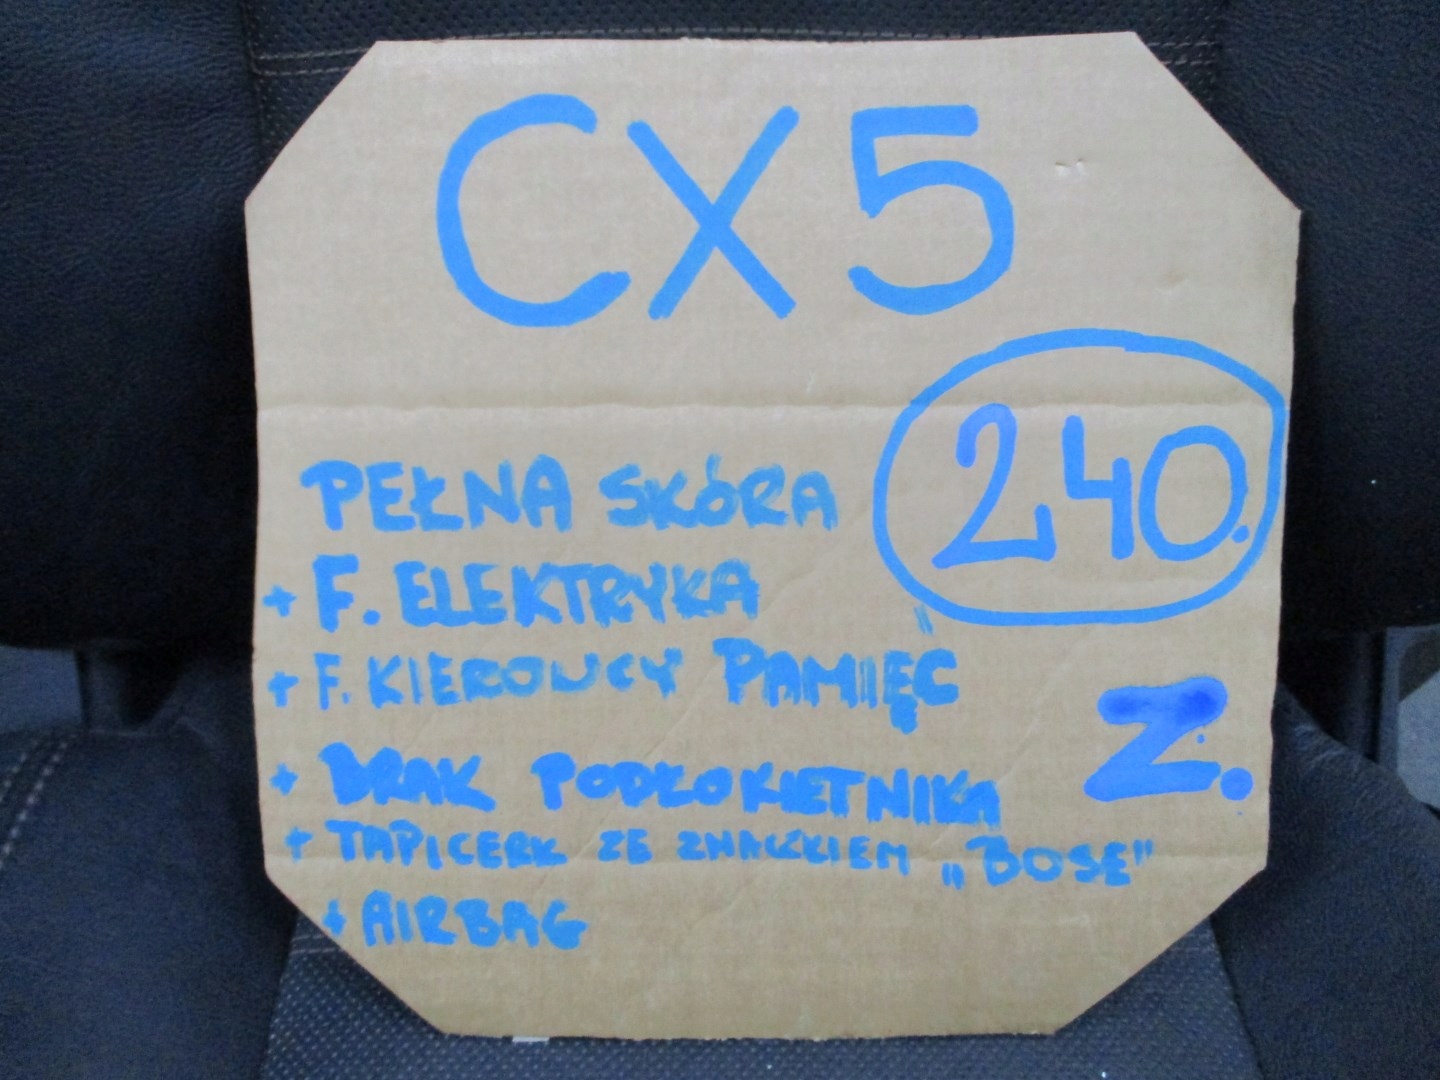 CX5
240.
PEŁNA SKÓRA
+ F. ELEKTRYKA
+ F. KIEROWCY PAMIĘĆ
Z.
+ BRAK PODŁOKIETNIKA
+ TAPICERK ZE ZNACZKIEM „BOSE"
+ AIRBAG